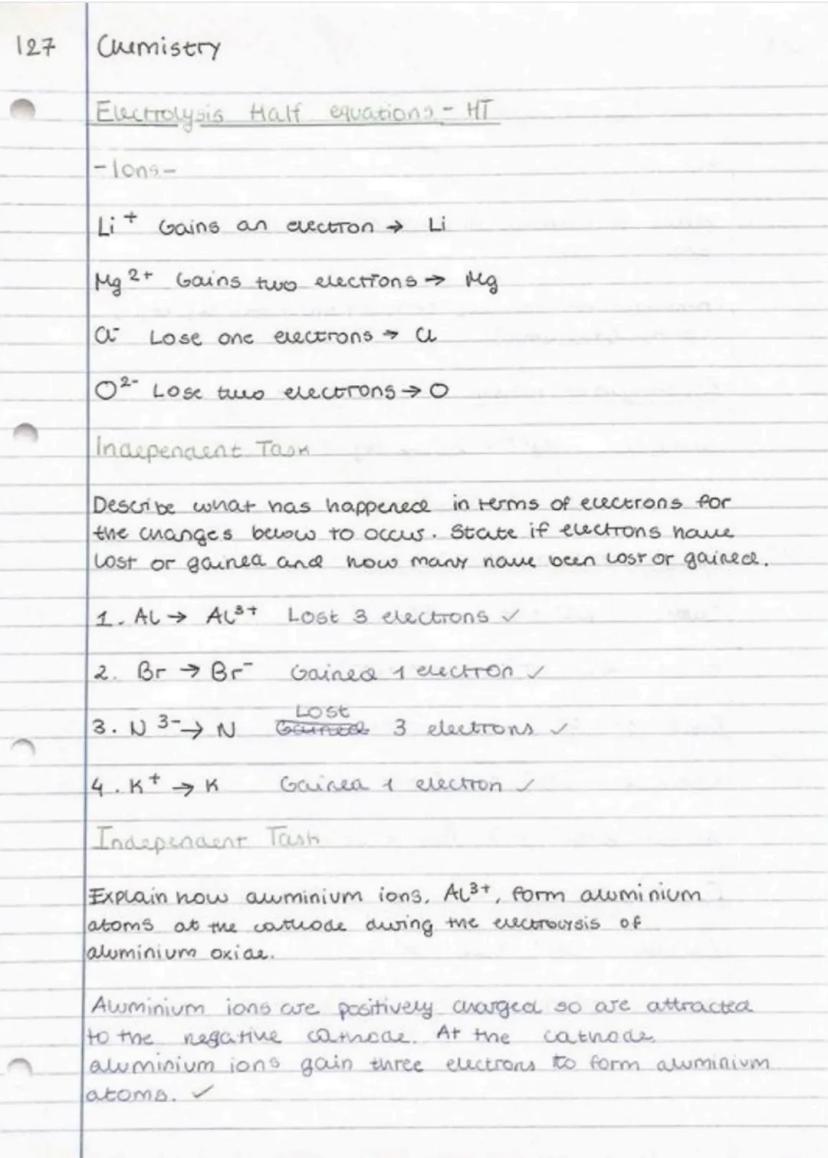 127 Chemistry
Electrolysis Half equations - HT
- Ions -
Li⁺ Gains an electron → Li
Mg²⁺ Gains two electrons → Mg
Cl⁻ Lose one electrons → Cl
O²⁻ Lose two electrons → O
Independent Task
Describe what has happened in terms of electrons for
the changes below to occur. State if electrons have
lost or gained and how many have been lost or gained.
1. Al → Al³⁺ Lost 3 electrons ✓
2. Br → Br⁻ Gained 1 electron ✓
Lost
3. N³⁻ → N Gained 3 electrons ✓
4. K⁺ → K Gained 1 electron ✓
Independent Task
Explain how aluminium ions, Al³⁺, form aluminium
atoms at the cathode during the electrolysis of
aluminium oxide.
Aluminium ions are positively charged so are attracted
to the negative cathode. At the cathode
aluminium ions gain three electrons to form aluminium
atoms. ✓